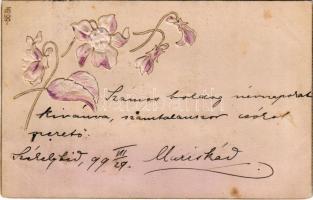 Számos boldog névnapokat
kívánva, számtalanszor csókol
szerető
Székelyhid, 99 III/29. Mariskád